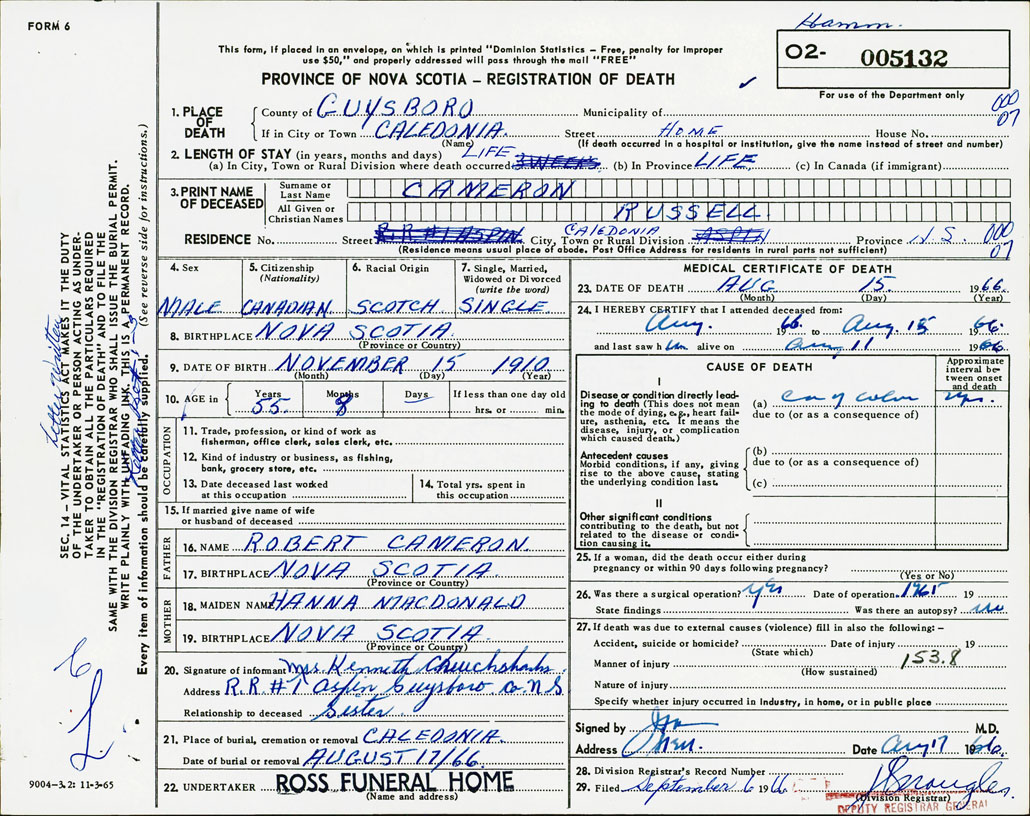 FORM 6
Hamm.
This form, if placed in an envelope, on which is printed "Dominion Statistics – Free, penalty for improper
use $50," and properly addressed will pass through the mail "FREE"
PROVINCE OF NOVA SCOTIA – REGISTRATION OF DEATH
O2- 005132
For use of the Department only
000
07
1. PLACE OF DEATH
County of GUYSBORO Municipality of
If in City or Town CALEDONIA. Street HOME House No.
(Name) (If death occurred in a hospital or institution, give the name instead of street and number)
2. LENGTH OF STAY (in years, months and days) LIFE
(a) In City, Town or Rural Division where death occurred 3 WEEKS (b) In Province LIFE (c) In Canada (if immigrant)
3. PRINT NAME OF DECEASED
Surname or Last Name CAMERON
All Given or Christian Names RUSSELL
RESIDENCE No. Street R.R.#1 ASPIN City, Town or Rural Division CALEDONIA ASPIN Province N.S. 000
07
(Residence means usual place of abode. Post Office Address for residents in rural parts not sufficient)
4. Sex
MALE
5. Citizenship (Nationality)
CANADIAN
6. Racial Origin
SCOTCH
7. Single, Married, Widowed or Divorced (write the word)
SINGLE
8. BIRTHPLACE NOVA SCOTIA
(Province or Country)
9. DATE OF BIRTH NOVEMBER 15 1910
(Month) (Day) (Year)
10. AGE in Years 55 Months 8 Days – If less than one day old hrs. or min.
OCCUPATION
11. Trade, profession, or kind of work as
fisherman, office clerk, sales clerk, etc.
12. Kind of industry or business, as fishing,
bank, grocery store, etc.
13. Date deceased last worked
at this occupation
14. Total yrs. spent in
this occupation
15. If married give name of wife
or husband of deceased
FATHER
16. NAME ROBERT CAMERON.
17. BIRTHPLACE NOVA SCOTIA
(Province or Country)
MOTHER
18. MAIDEN NAME HANNA MACDONALD
19. BIRTHPLACE NOVA SCOTIA
(Province or Country)
20. Signature of informant Mrs. Kenneth
Address R.R #1 Aspin Guysboro Co. N.S
Relationship to deceased Sister
21. Place of burial, cremation or removal CALEDONIA.
Date of burial or removal AUGUST 17/66.
22. UNDERTAKER ROSS FUNERAL HOME
(Name and address)
MEDICAL CERTIFICATE OF DEATH
23. DATE OF DEATH AUG 15 1966.
(Month) (Day) (Year)
24. I HEREBY CERTIFY that I attended deceased from:
Aug. 1966 to Aug. 15 1966.
and last saw him alive on Aug 11 1966
CAUSE OF DEATH
Approximate interval between onset and death
I
Disease or condition directly leading to death (This does not mean
the mode of dying, e.g., heart failure, asthenia, etc. It means the
disease, injury, or complication
which caused death.)
(a) Ca of colon yrs.
due to (or as a consequence of)
Antecedent causes
Morbid conditions, if any, giving
rise to the above cause, stating
the underlying condition last.
(b)
due to (or as a consequence of)
(c)
II
Other significant conditions
contributing to the death, but not
related to the disease or condition causing it.
25. If a woman, did the death occur either during
pregnancy or within 90 days following pregnancy?
(Yes or No)
26. Was there a surgical operation? yes Date of operation 1965 19
State findings Was there an autopsy? no
27. If death was due to external causes (violence) fill in also the following: –
Accident, suicide or homicide? Date of injury 19
(State which)
Manner of injury 153.8
(How sustained)
Nature of injury
Specify whether injury occurred in industry, in home, or in public place
Signed by M.D.
Address Date Aug 17 1966.
28. Division Registrar's Record Number
29. Filed September 6 1966
(Division Registrar)
DEPUTY REGISTRAR GENERAL
SEC. 14 – VITAL STATISTICS ACT MAKES IT THE DUTY
OF THE UNDERTAKER OR PERSON ACTING AS UNDERTAKER TO OBTAIN ALL THE PARTICULARS REQUIRED
IN THE "REGISTRATION OF DEATH" AND TO FILE THE
SAME WITH THE DIVISION REGISTRAR WHO SHALL ISSUE THE BURIAL PERMIT.
WRITE PLAINLY WITH UNFADING INK. THIS IS A PERMANENT RECORD.
Every item of information should be carefully supplied. (See reverse side for instructions.)
9004-3.2: 11-3-65